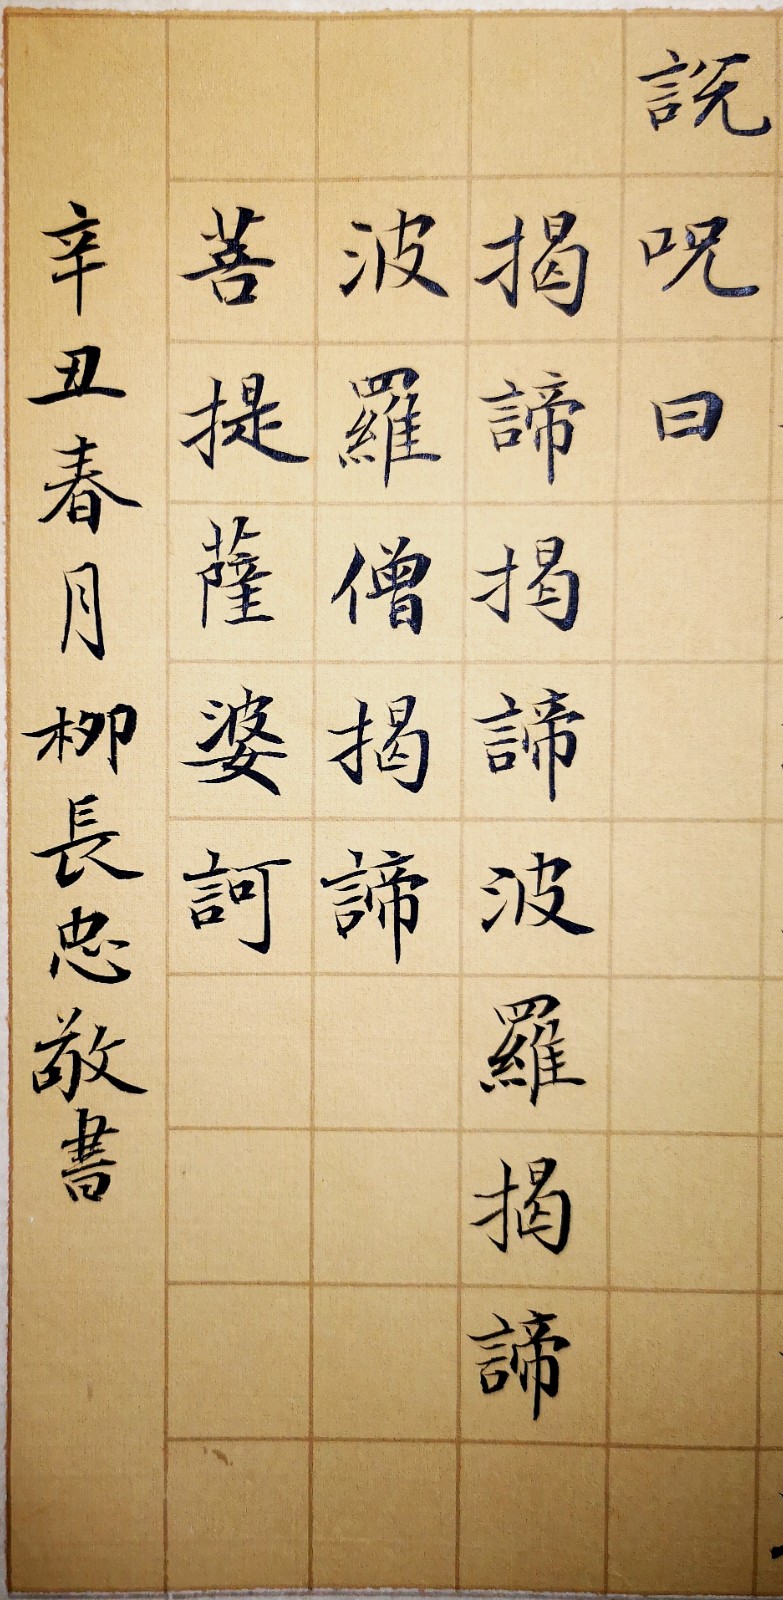 說呪曰
揭諦揭諦波羅揭諦
波羅僧揭諦
菩提薩婆訶
辛丑春月柳長忠敬書